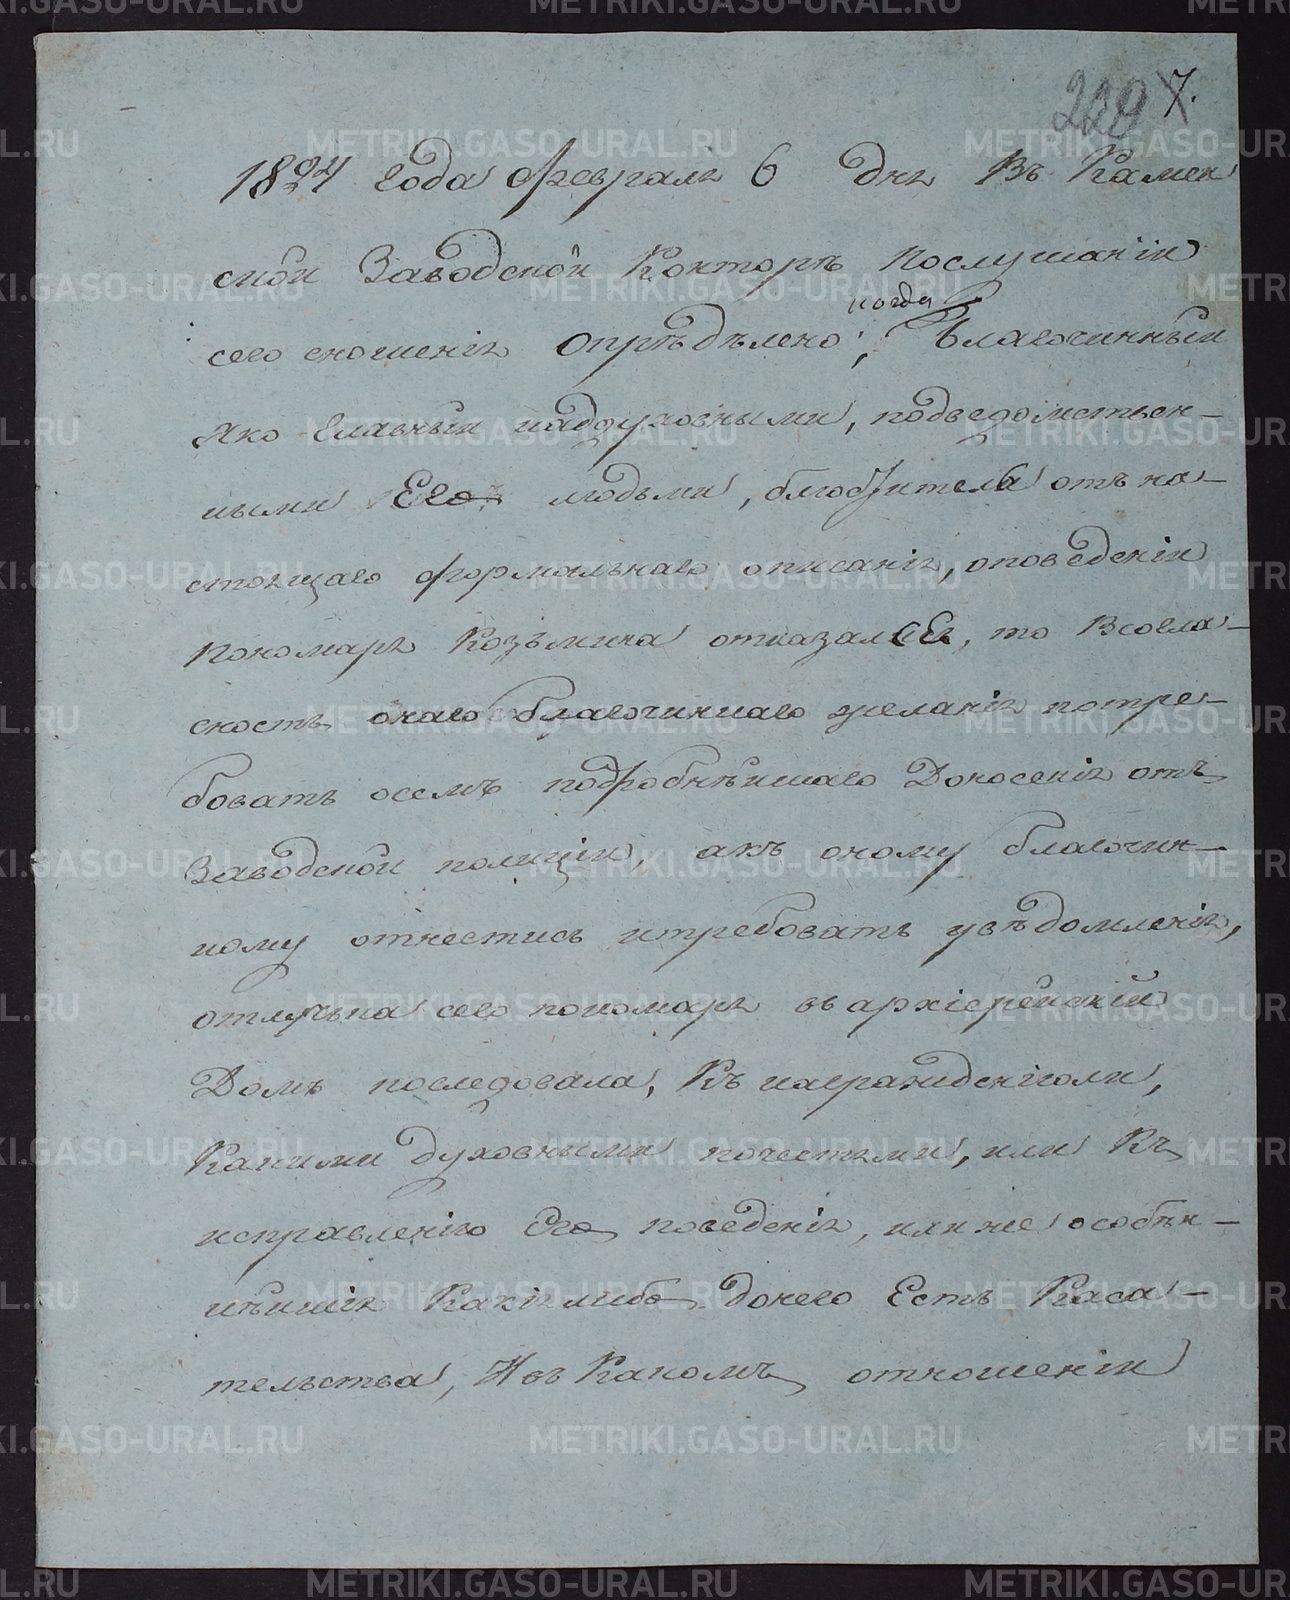 220 7.
1824 года Февраля 6 дня Въ Камен
ской Заводской Конторѣ Послушанiи
сего сношенiя опредѣлено; когда Благочинный
яко Главный наддуховными, подведомствен-
ными Его людьми, блюститель отъ на-
стоящаго формальнаго описанiя, оповеденiи
Пономаря Козьмина отказалсЕ, то Всогла-
сность онаго благочиннаго желанiя потре-
бовать осемъ подробнѣйшаго Донесенiя отъ
Заводской полицiи, акъ оному благочин-
ному отнестись итребовать увѣдомленiя,
отлучька сего пономаря въ архiерейскiй
Домъ последовала, Къ награжденiюли,
Какими духовными почестьми, или Къ
исправленiю Его поведенiя, или же особѣн-
нѣйшiя Какiялибо донего Есть Каса-
тельства, И въ Какомъ отношенiи
METRIKI.GASO-URAL.RU